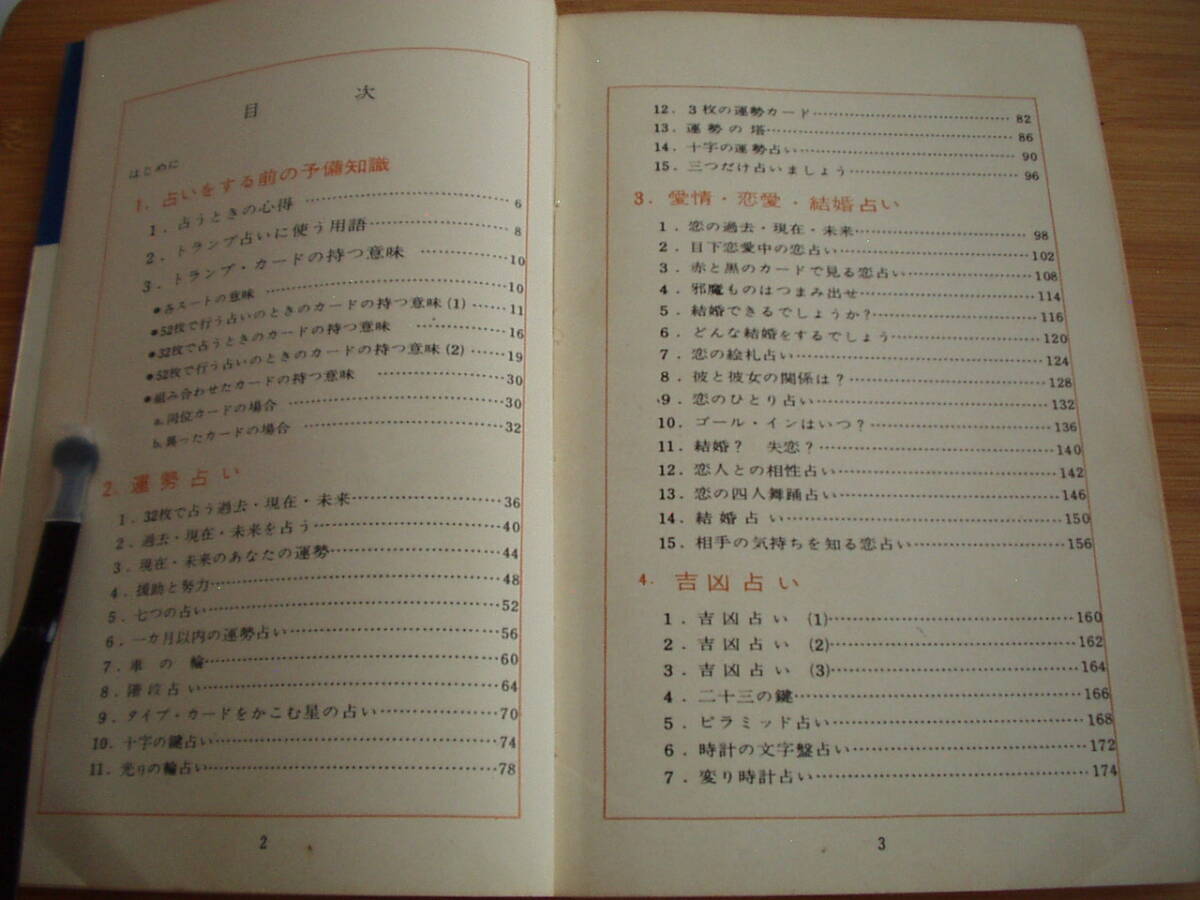 目次
はじめに
1. 占いをする前の予備知識
1. 占うときの心得 6
2. トランプ占いに使う用語 8
3. トランプ・カードの持つ意味 10
●各スートの意味 10
●52枚で行う占いのときのカードの持つ意味(1) 11
●32枚で占うときのカードの持つ意味 16
●52枚で行う占いのときのカードの持つ意味(2) 19
●組み合わせたカードの持つ意味 30
a. 同位カードの場合 30
b. 異ったカードの場合 32
2. 運勢占い
1. 32枚で占う過去・現在・未来 36
2. 過去・現在・未来を占う 40
3. 現在・未来のあなたの運勢 44
4. 援助と努力 48
5. 七つの占い 52
6. 一カ月以内の運勢占い 56
7. 車の輪 60
8. 階段占い 64
9. タイプ・カードをかこむ星の占い 70
10. 十字の鍵占い 74
11. 光りの輪占い 78
2
12. 3枚の運勢カード 82
13. 運勢の塔 86
14. 十字の運勢占い 90
15. 三つだけ占いましょう 96
3. 愛情・恋愛・結婚占い
1. 恋の過去・現在・未来 98
2. 目下恋愛中の恋占い 102
3. 赤と黒のカードで見る恋占い 108
4. 邪魔ものはつまみ出せ 114
5. 結婚できるでしょうか? 116
6. どんな結婚をするでしょう 120
7. 恋の絵札占い 124
8. 彼と彼女の関係は? 128
9. 恋のひとり占い 132
10. ゴール・インはいつ? 136
11. 結婚? 失恋? 140
12. 恋人との相性占い 142
13. 恋の四人舞踊占い 146
14. 結婚占い 150
15. 相手の気持ちを知る恋占い 156
4. 吉凶占い
1. 吉凶占い (1) 160
2. 吉凶占い (2) 162
3. 吉凶占い (3) 164
4. 二十三の鍵 166
5. ピラミッド占い 168
6. 時計の文字盤占い 172
7. 変り時計占い 174
3